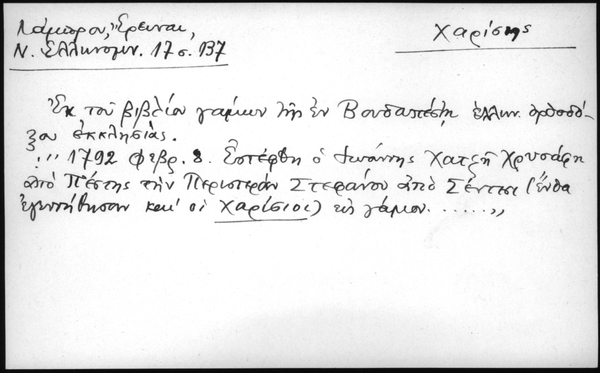 Λάμπρου, Ἔρευναι,
Ν. Ἑλληνομν. 17 σ. 137
Χαρίσης
Ἐκ τοῦ βιβλίου γάμων τῆς ἐν Βουδαπέστῃ ἑλλην. ὀρθοδό-
ξου ἐκκλησίας.
"1792 Φεβρ. 8. Ἐστέφθη ὁ Ἰωάννης Χατζῆ Χρυσάφη
ἀπὸ Πέστης τὴν Περιστερὰν Στεφάνου ἀπὸ Σέντσι (ἔνθα
ἐγεννήθησαν καὶ οἱ Χαρίσιοι) εἰς γάμον......"